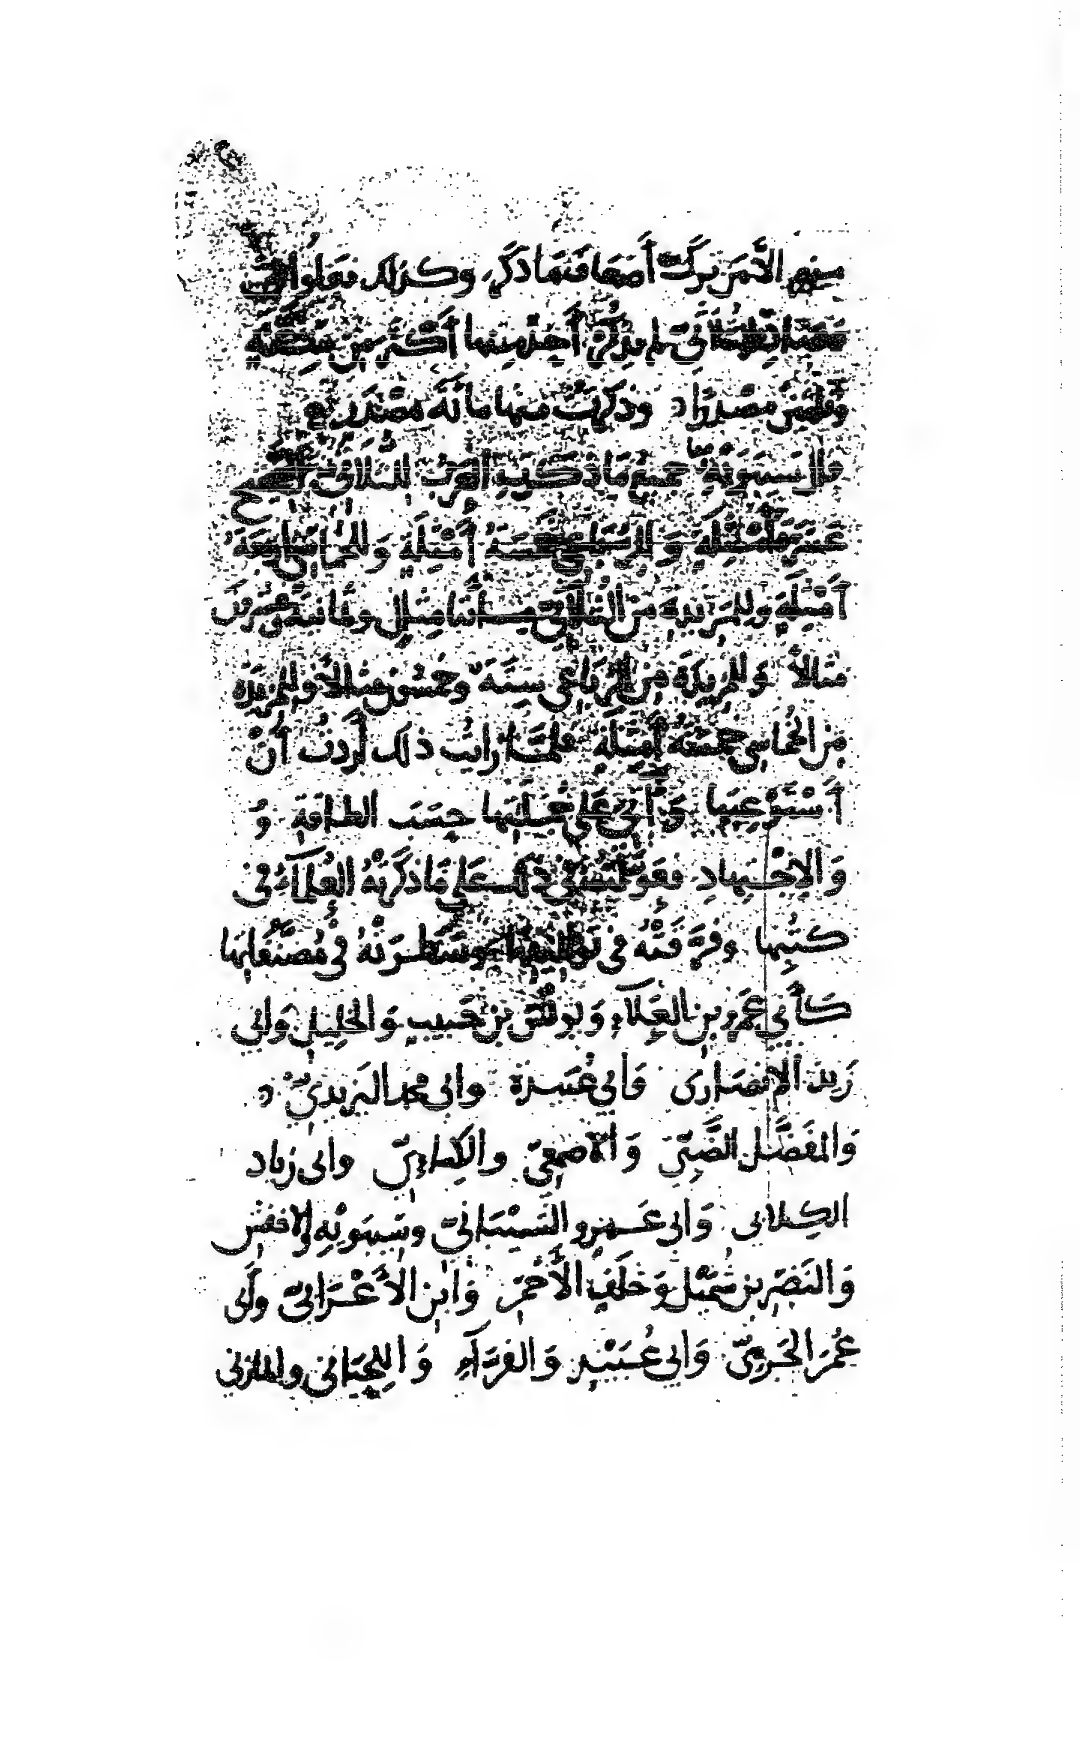 منهم إلا من ترك أضعاف ما ذكر وكذلك فعلوا في
مصادر الثلاثي لم يذكر أحد منها أكثر من ستة
وثلثين مصدرا وذكرت منها مائة مصدر
قال سيبويه جميع ما ذكر
عشرة أمثلة وللرباعي خمسة أمثلة وللخماسي أربعة
أمثلة وللمزيدة من الثلاثي مثال وثمانية
مثالا وللمزيدة من الرباعي ستة وخمسون مثالا وللمزيدة
من الخماسي خمسة أمثلة فلما رأيت ذلك أردت أن
أستوعبها وآتي على جملتها حسب الطاقة و
والاجتهاد فعولت في ذلك على ما ذكرته العلماء في
كتبها وفرقته في تواليفها وسطرته في مصنفاتها
كأبي عمرو بن العلاء ويونس بن حبيب والخليل وأبي
زيد الأنصاري وأبي عبيدة وأبي محمد اليزيدي
والمفضل الضبي والأصمعي والكسائي وأبي زياد
الكلابي وأبي عمرو الشيباني وسيبويه والأخفش
والنضر بن شميل وخلف الأحمر وابن الأعرابي وأبي
عمر الجرمي وأبي عبيد والفراء واللحياني والمازني